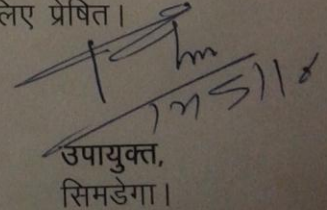 लिए प्रेषित।
उपायुक्त,
सिमडेगा।